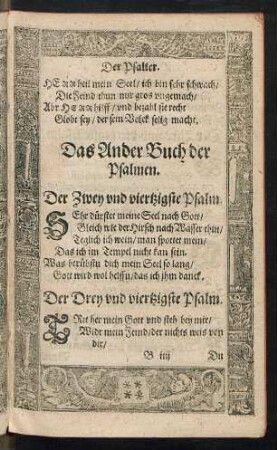 Der Psalter.
HERR heil mein Seel/ ich bin sehr schwach/
Die Feind thun mir gros vngemach/
Abr HERR hilff/ vnd bezahl sie recht
Globt sey/ der sein Volck selig macht.
Das Ander Buch der
Psalmen.
Der Zwey vnd viertzigste Psalm.
SEhr dürstet meine Seel nach Gott/
Gleich wie der Hirsch nach Wasser thut/
Teglich ich wein/ man spottet mein/
Das ich im Tempel nicht kan sein.
Was betrübstu dich mein Seel so lang/
Gott wird wol helffn/ das ich jhm danck.
Der Drey vnd viertzigste Psalm.
TRit her mein Gott vnd steh bey mir/
Widr mein Feind/ der nichts weis von
dir/
B iiij Du